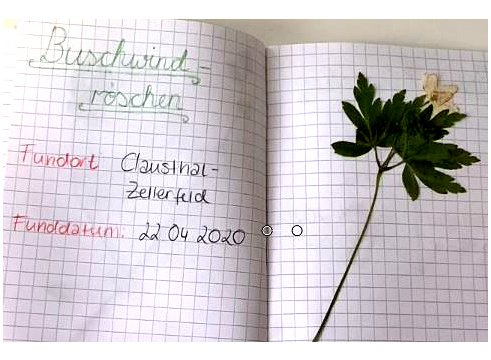 Buschwind-
röschen
Fundort Clausthal-
Zellerfeld
Funddatum: 22 04 2020